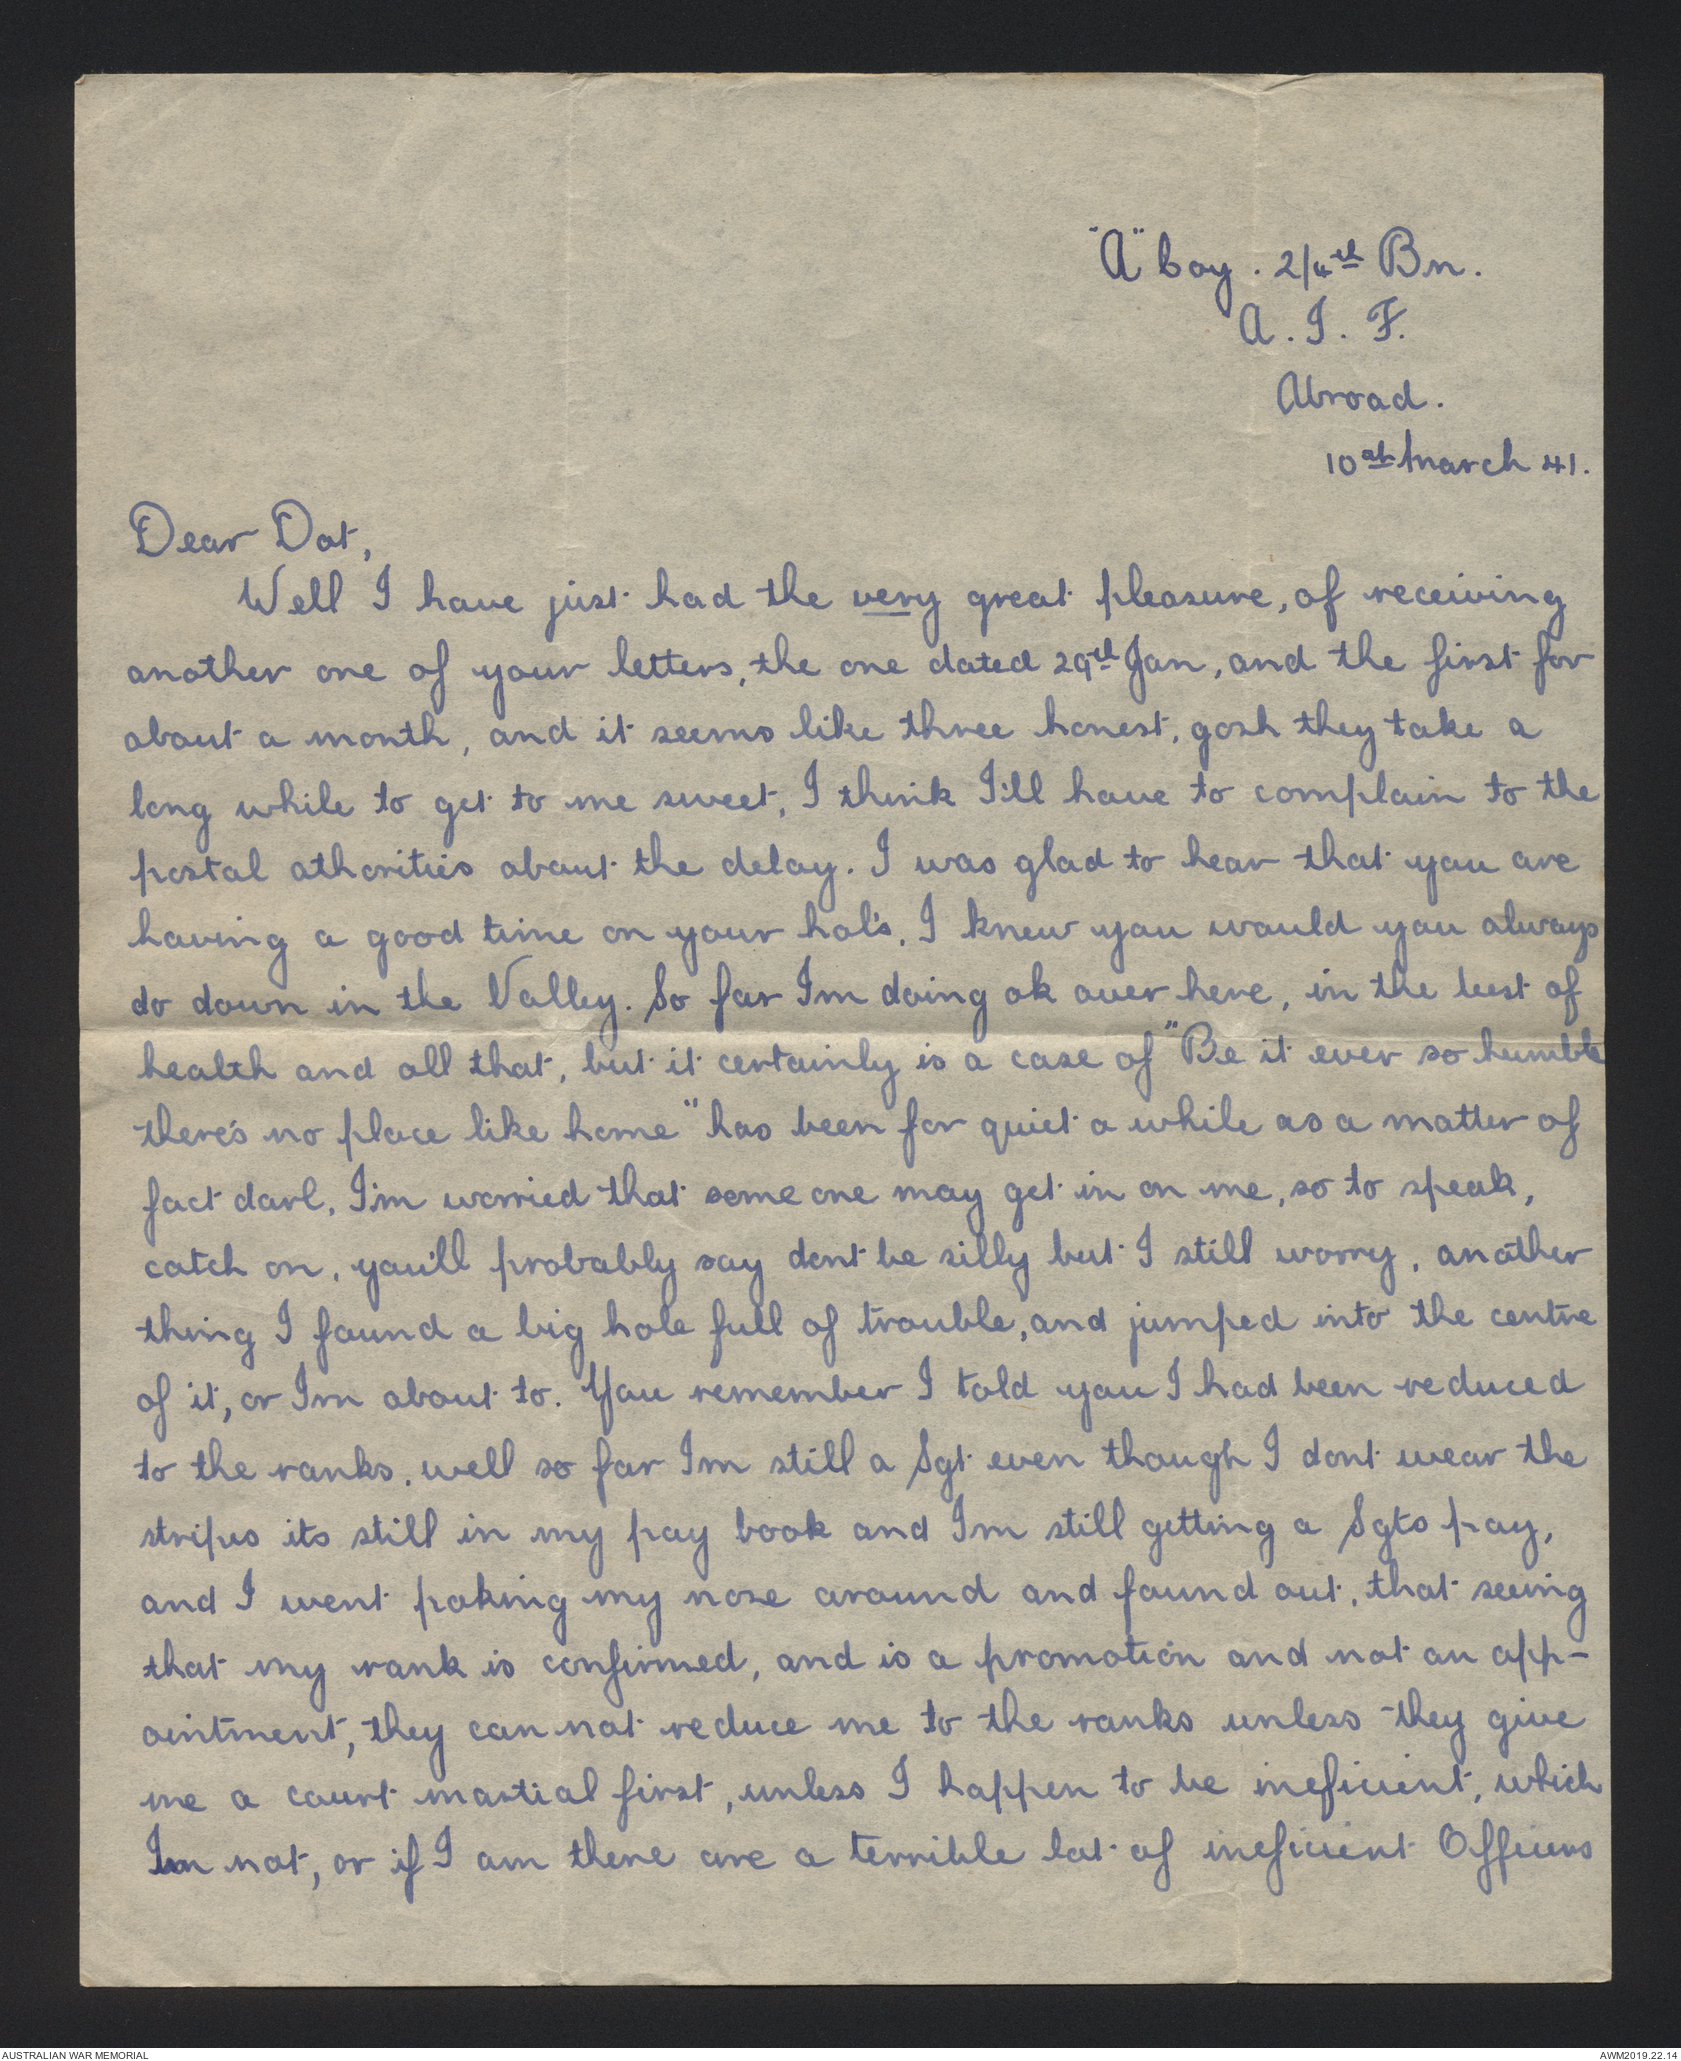 "A" Coy. 2/4th Bn.
A. I. F.
Abroad.
10th March 41.
Dear Dot,
Well I have just had the very great pleasure, of receiving
another one of your letters, the one dated 29th Jan, and the first for
about a month, and it seems like three honest, gosh they take a
long while to get to me sweet, I think I'll have to complain to the
postal athorities about the delay. I was glad to hear that you are
having a good time on your hol's, I knew you would you always
do down in the Valley. So far Im doing ok over here, in the best of
health and all that, but it certainly is a case of "Be it ever so humble
there's no place like home" has been for quiet a while as a matter of
fact darl, I'm worried that some one may get in on me, so to speak,
catch on, you'll probably say dont be silly but I still worry, another
thing I found a big hole full of trouble, and jumped into the centre
of it, or Im about to. You remember I told you I had been reduced
to the ranks, well so far Im still a Sgt even though I dont wear the
stripes its still in my pay book and Im still getting a Sgts pay,
and I went poking my nose around and found out, that seeing
that my rank is confirmed, and is a promotion and not an app-
ointment, they can not reduce me to the ranks unless they give
me a court martial first, unless I happen to be ineficient, which
Im not, or if I am there are a terrible lot of ineficient Officers
AUSTRALIAN WAR MEMORIAL
AWM2019.22.14